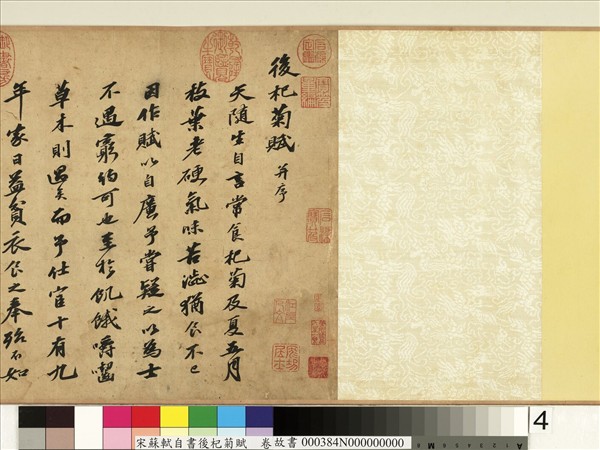 後杞菊賦 并序
天隨生自言常食杞菊及夏五月
枝葉老硬氣味苦澁猶食不已
因作賦以自廣予嘗疑之以為士
不遇窮約可也至於飢餓嚼齧
草木則過矣而予仕宦十有九
年家日益貧衣食之奉殆不如
宋蘇軾自書後杞菊賦 卷故書 000384N000000000
4